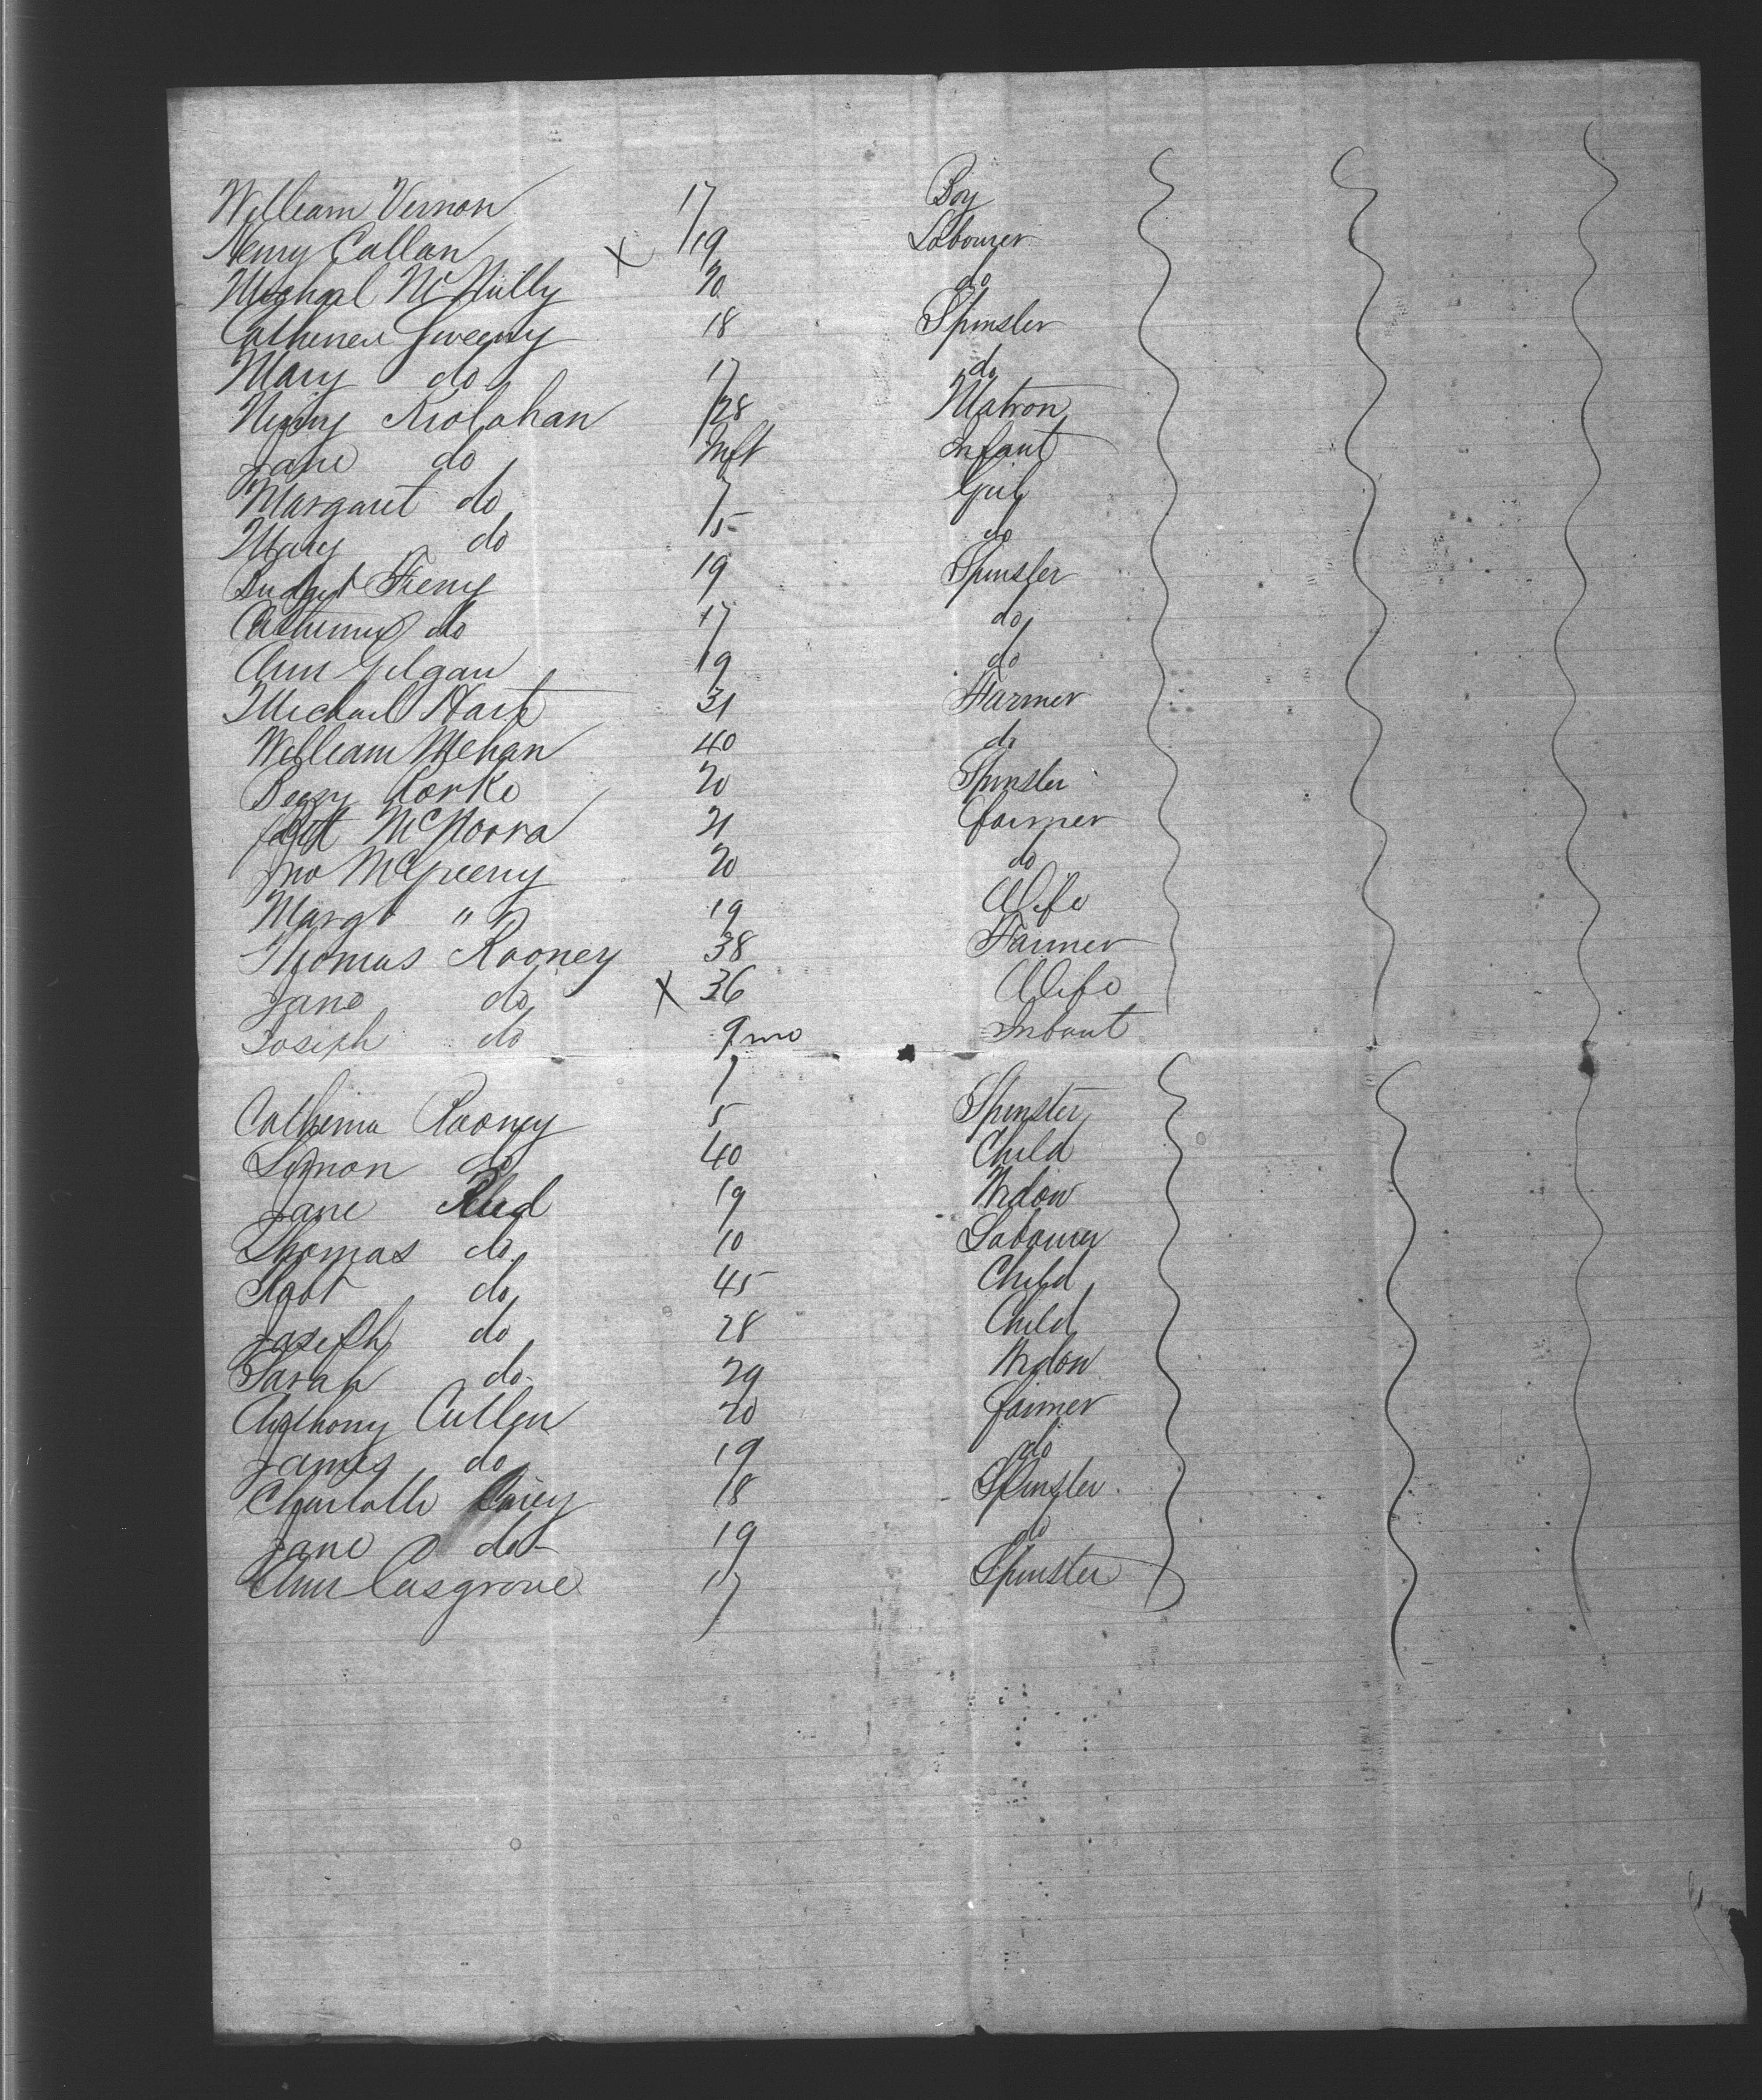 William Vernon 17 Boy
Henry Callan X 19 Labourer
Michael McNully 20 do
Catherine Sweeny 18 Spinster
Mary do 17 do
Kiolahan 28 Matron
Jane do Inft Infant
Margaret do 7 Girl
Mary do 5 do
Bridget Feeny 19 Spinster
Catherine do 17 do
Ann Gilgan 19 do
Michael Hart 31 Farmer
William Mehan 40 do
Rorke 20 Spinster
21 farmer
Jno McGreeny 20 do
Margt " " 19 Wife
Thomas Rooney 38 Farmer
Jane do X 36 Wife
Joseph do 9 mo Infant
Catherine Rooney 7 Spinster
Simon do 5 Child
Jane 40 Widow
Thomas do 19 Labourer
Robt do 10 Child
Joseph do 45 Child
Sarah do 28 Widow
Anthony Cullen 29 farmer
James do 20 do
Charlotte 19 Spinster
Jane do 18 do
Ann Casgrove 19 Spinster
17